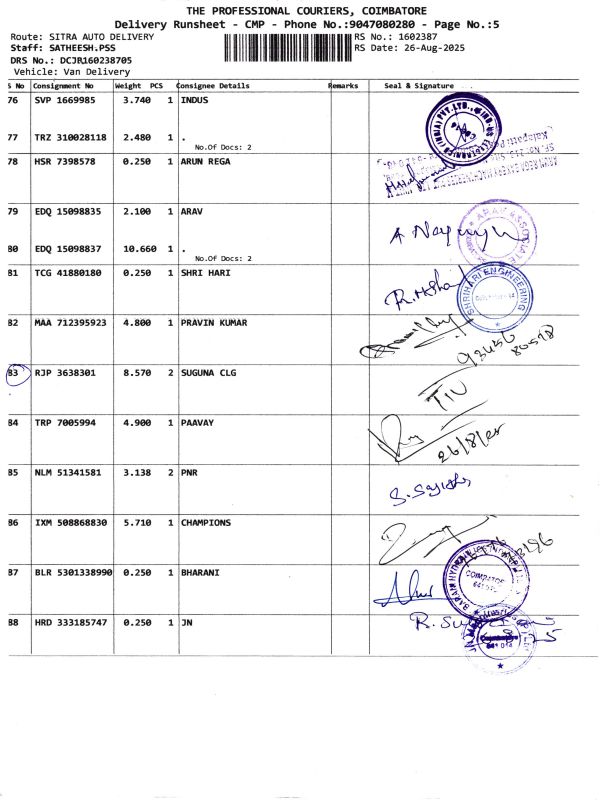 THE PROFESSIONAL COURIERS, COIMBATORE
Delivery Runsheet - CMP - Phone No.:9047080280 - Page No.:5
Route: SITRA AUTO DELIVERY RS No.: 1602387
Staff: SATHEESH.PSS RS Date: 26-Aug-2025
DRS No.: DCJR160238705
Vehicle: Van Delivery
S No Consignment No Weight PCS Consignee Details Remarks Seal & Signature
76 SVP 1669985 3.740 1 INDUS
77 TRZ 310028118 2.480 1 .
No.Of Docs: 2
78 HSR 7398578 0.250 1 ARUN REGA
79 EDQ 15098835 2.100 1 ARAV
80 EDQ 15098837 10.660 1 .
No.Of Docs: 2
81 TCG 41880180 0.250 1 SHRI HARI
SHRIHARI ENGINEERING
82 MAA 712395923 4.800 1 PRAVIN KUMAR
83 RJP 3638301 8.570 2 SUGUNA CLG
84 TRP 7005994 4.900 1 PAAVAY
26/8/25
85 NLM 51341581 3.138 2 PNR
86 IXM 508868830 5.710 1 CHAMPIONS
87 BLR 5301338990 0.250 1 BHARANI
COIMBATORE
88 HRD 333185747 0.250 1 JN